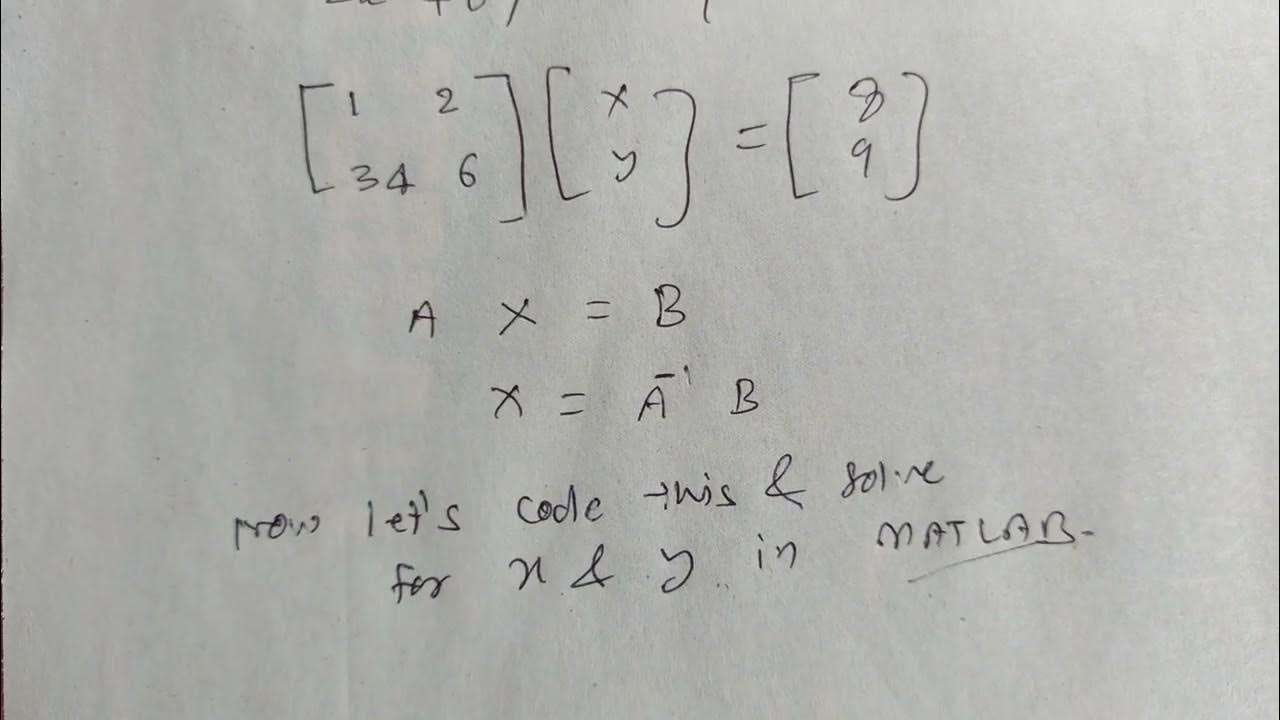 [1 2
34 6] [x
y] = [8
9]
A X = B
X = A⁻¹ B
now let's code this & solve
for x & y in MATLAB.